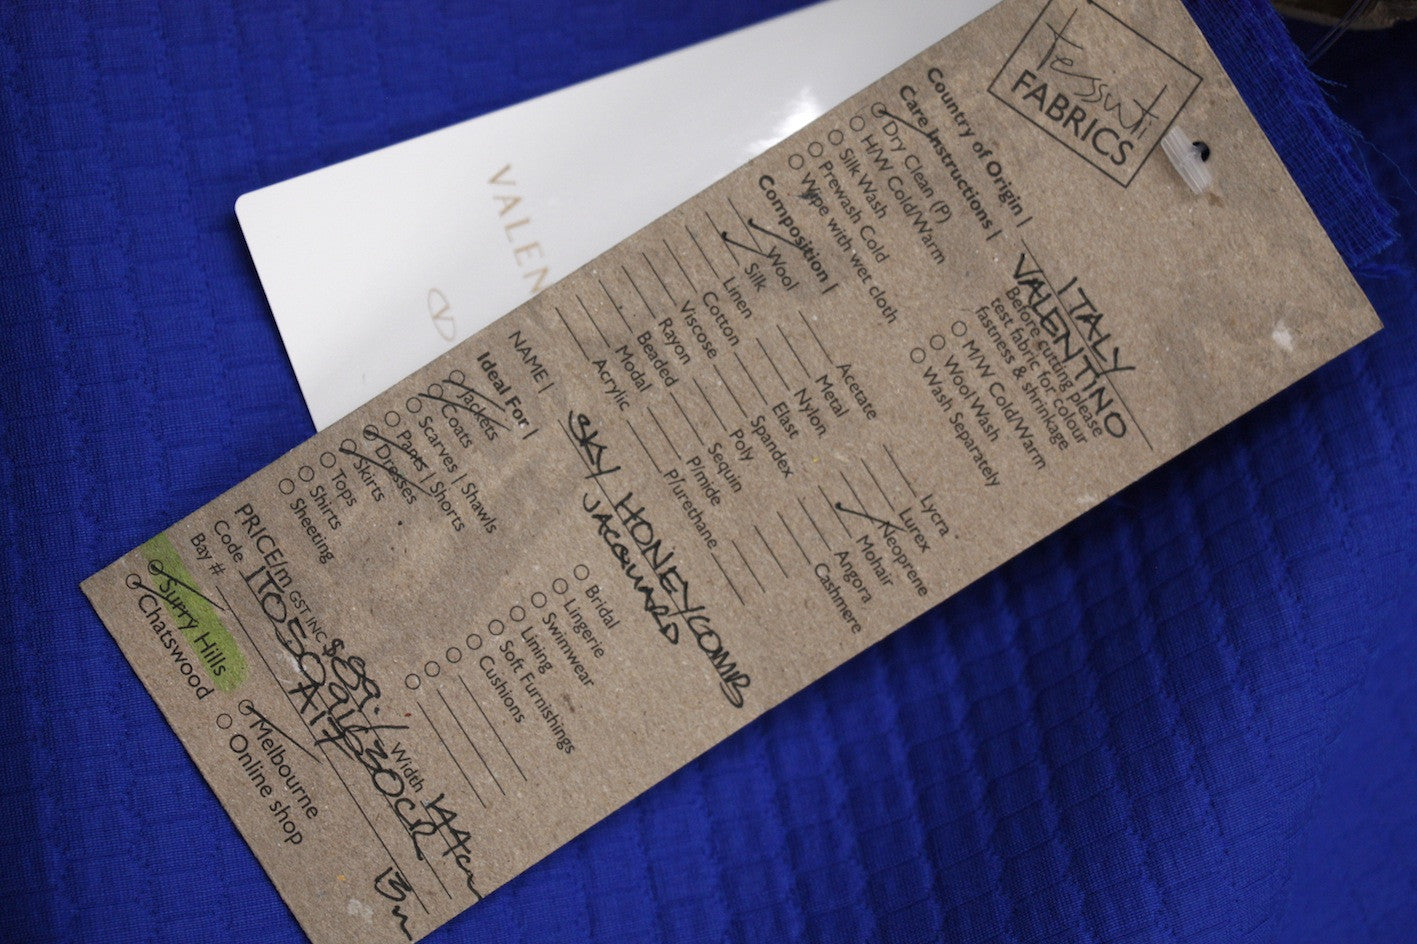 tessuti
FABRICS
Country of Origin | ITALY
VALENTINO
Care Instructions |
Before cutting please
test fabric for colour
fastness & shrinkage
Dry Clean (P)
H/W Cold/Warm
Silk Wash
Prewash Cold
Wipe with wet cloth
M/W Cold/Warm
Wool Wash
Wash Separately
Composition |
Wool
Silk
Linen
Cotton
Viscose
Rayon
Beaded
Modal
Acrylic
Acetate
Metal
Nylon
Elast
Spandex
Poly
Sequin
P/mide
P/urethane
Lycra
Lurex
Neoprene
Mohair
Angora
Cashmere
NAME | SKY HONEYCOMB
JACQUARD
Ideal For |
Jackets
Coats
Scarves | Shawls
Pants | Shorts
Dresses
Skirts
Tops
Shirts
Sheeting
Bridal
Lingerie
Swimwear
Lining
Soft Furnishings
Cushions
PRICE/m GST INC $89. Width 144cm
Code
Bay #
13m
Surry Hills
Chatswood
Melbourne
Online shop
VALEN